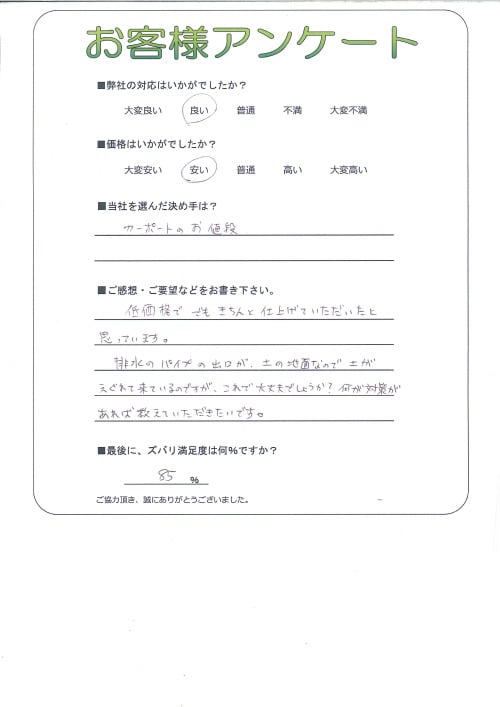 お客様アンケート
■弊社の対応はいかがでしたか？
大変良い 良い 普通 不満 大変不満
■価格はいかがでしたか？
大変安い 安い 普通 高い 大変高い
■当社を選んだ決め手は？
カーポートのお値段
■ご感想・ご要望などをお書き下さい。
低価格で でも きちんと仕上げていただいたと
思っています。
排水のパイプの出口が、土の地面なので土が
えぐれて来ているのですが、これで大丈夫でしょうか？何か対策が
あれば教えていただきたいです。
■最後に、ズバリ満足度は何％ですか？
85 ％
ご協力頂き、誠にありがとうございました。